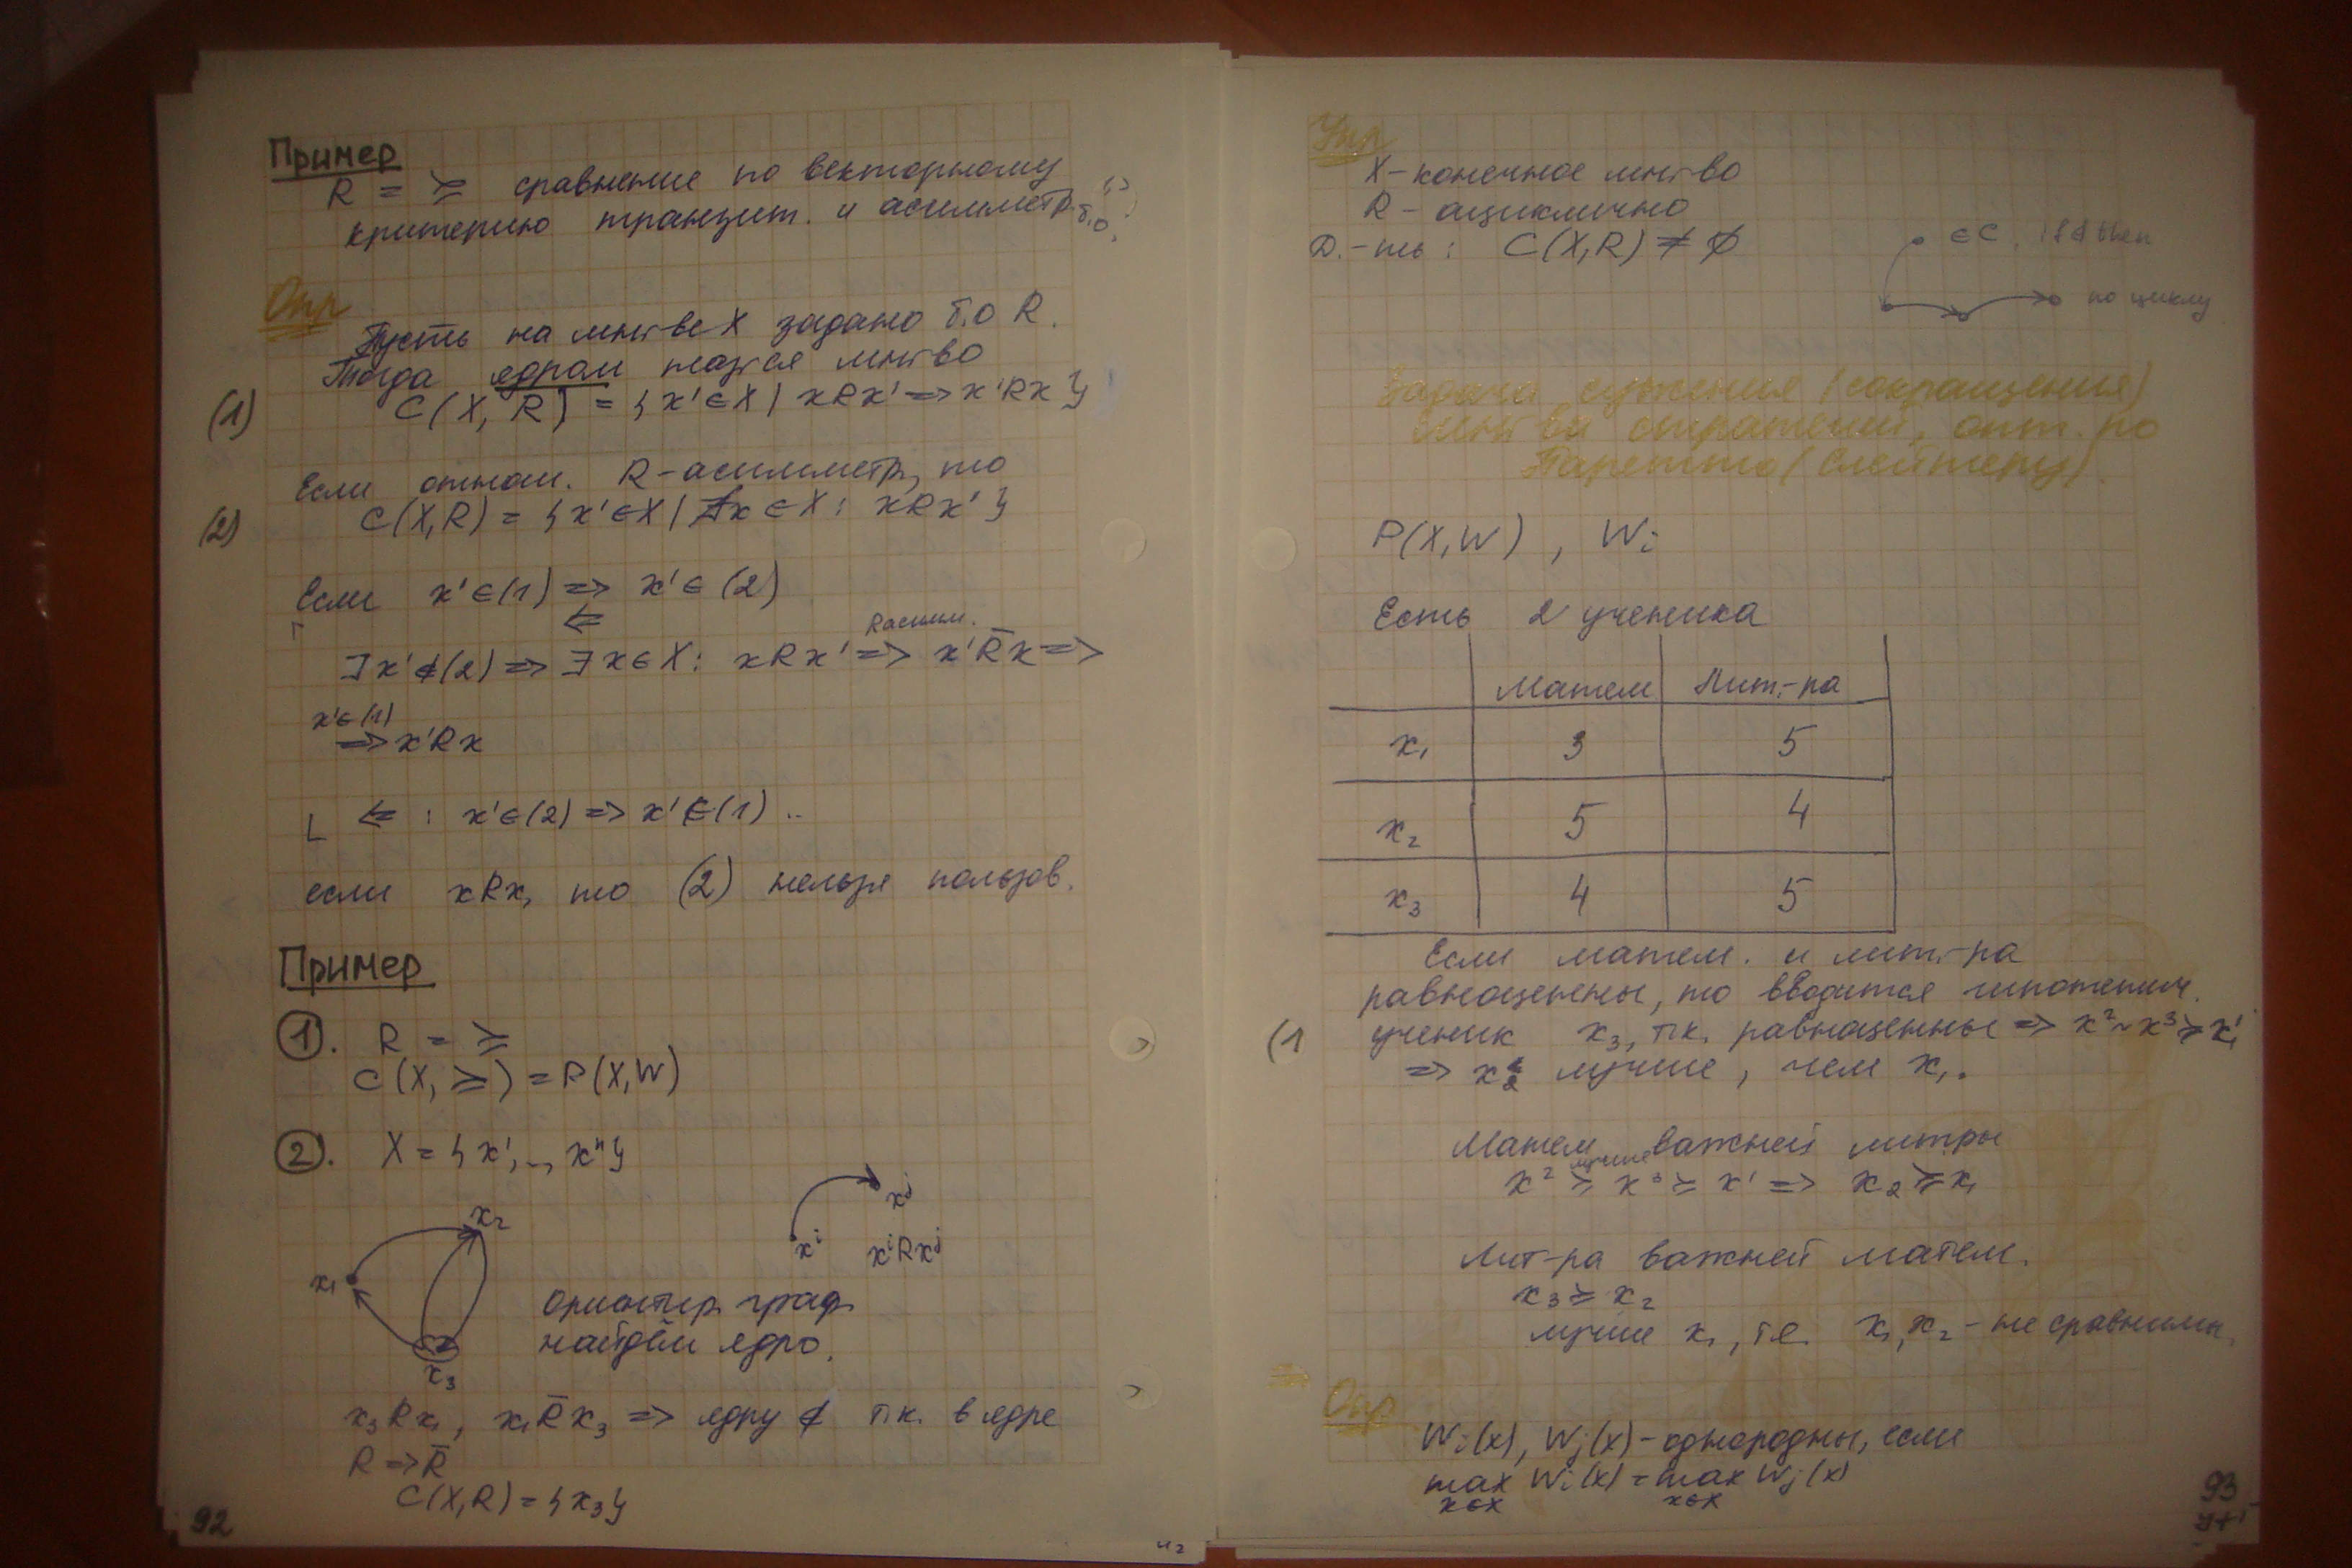 Пример
R = ≽ сравнение по векторному
критерию транзит. и асимметр. б.о.
Опр
Пусть на мн-ве X задано б.о R.
Тогда ядром наз-ся мн-во
(1) C(X, R) = {x' ∈ X | xRx' => x'Rx}
Если отнош. R - асимметр, то
(2) C(X,R) = {x' ∈ X | ∄x ∈ X : xRx'}
Если x' ∈ (1) => x' ∈ (2)
<=
R асимм.
∃ x' ∉ (2) => ∃ x ∈ X : xRx' => x'R̅x =>
x' ∈ (1)
=> x'Rx
<= : x' ∈ (2) => x' ∈ (1) ..
если xRx, то (2) нельзя пользов.
Пример
1. R = ≽
C(X, ≽) = P(X,W)
2. X = {x', .., xⁿ}
x₂
xʲ
x₁
xⁱ xⁱRxʲ
ориентир. граф
найдём ядро.
x₃
x₃Rx₁, x₁R̅x₃ => ядру ∉ т.к. в ядре
R => R̅
C(X,R) = {x₃}
92
Упр
X - конечное мн-во
R - ациклично
Д.-ть : C(X,R) ≠ ∅
∈ C, if ∉ then
по циклу
Задача сужения (сокращения)
мн-ва стратегий, опт. по
Паретто (Слейтеру).
P(X,W) , Wᵢ
Есть 2 ученика
Матем Лит-ра
x₁ 3 5
x₂ 5 4
x₃ 4 5
Если матем. и лит-ра
равноценны, то вводится гипотетич.
(1 ученик x₃, т.к. равноценны => x² ~ x³ ≽ x¹
=> x₂ лучше, чем x₁.
Матем важней литры
лучше
x² ≽ x³ ≽ x' => x₂ ≽ x₁
Лит-ра важней матем.
x₃ ≽ x₂
лучше x₁, т.е. x₁, x₂ - не сравнимы.
Опр
Wᵢ(x), Wⱼ(x) - однородны, если
max Wᵢ(x) = max Wⱼ(x)
x∈X x∈X
93